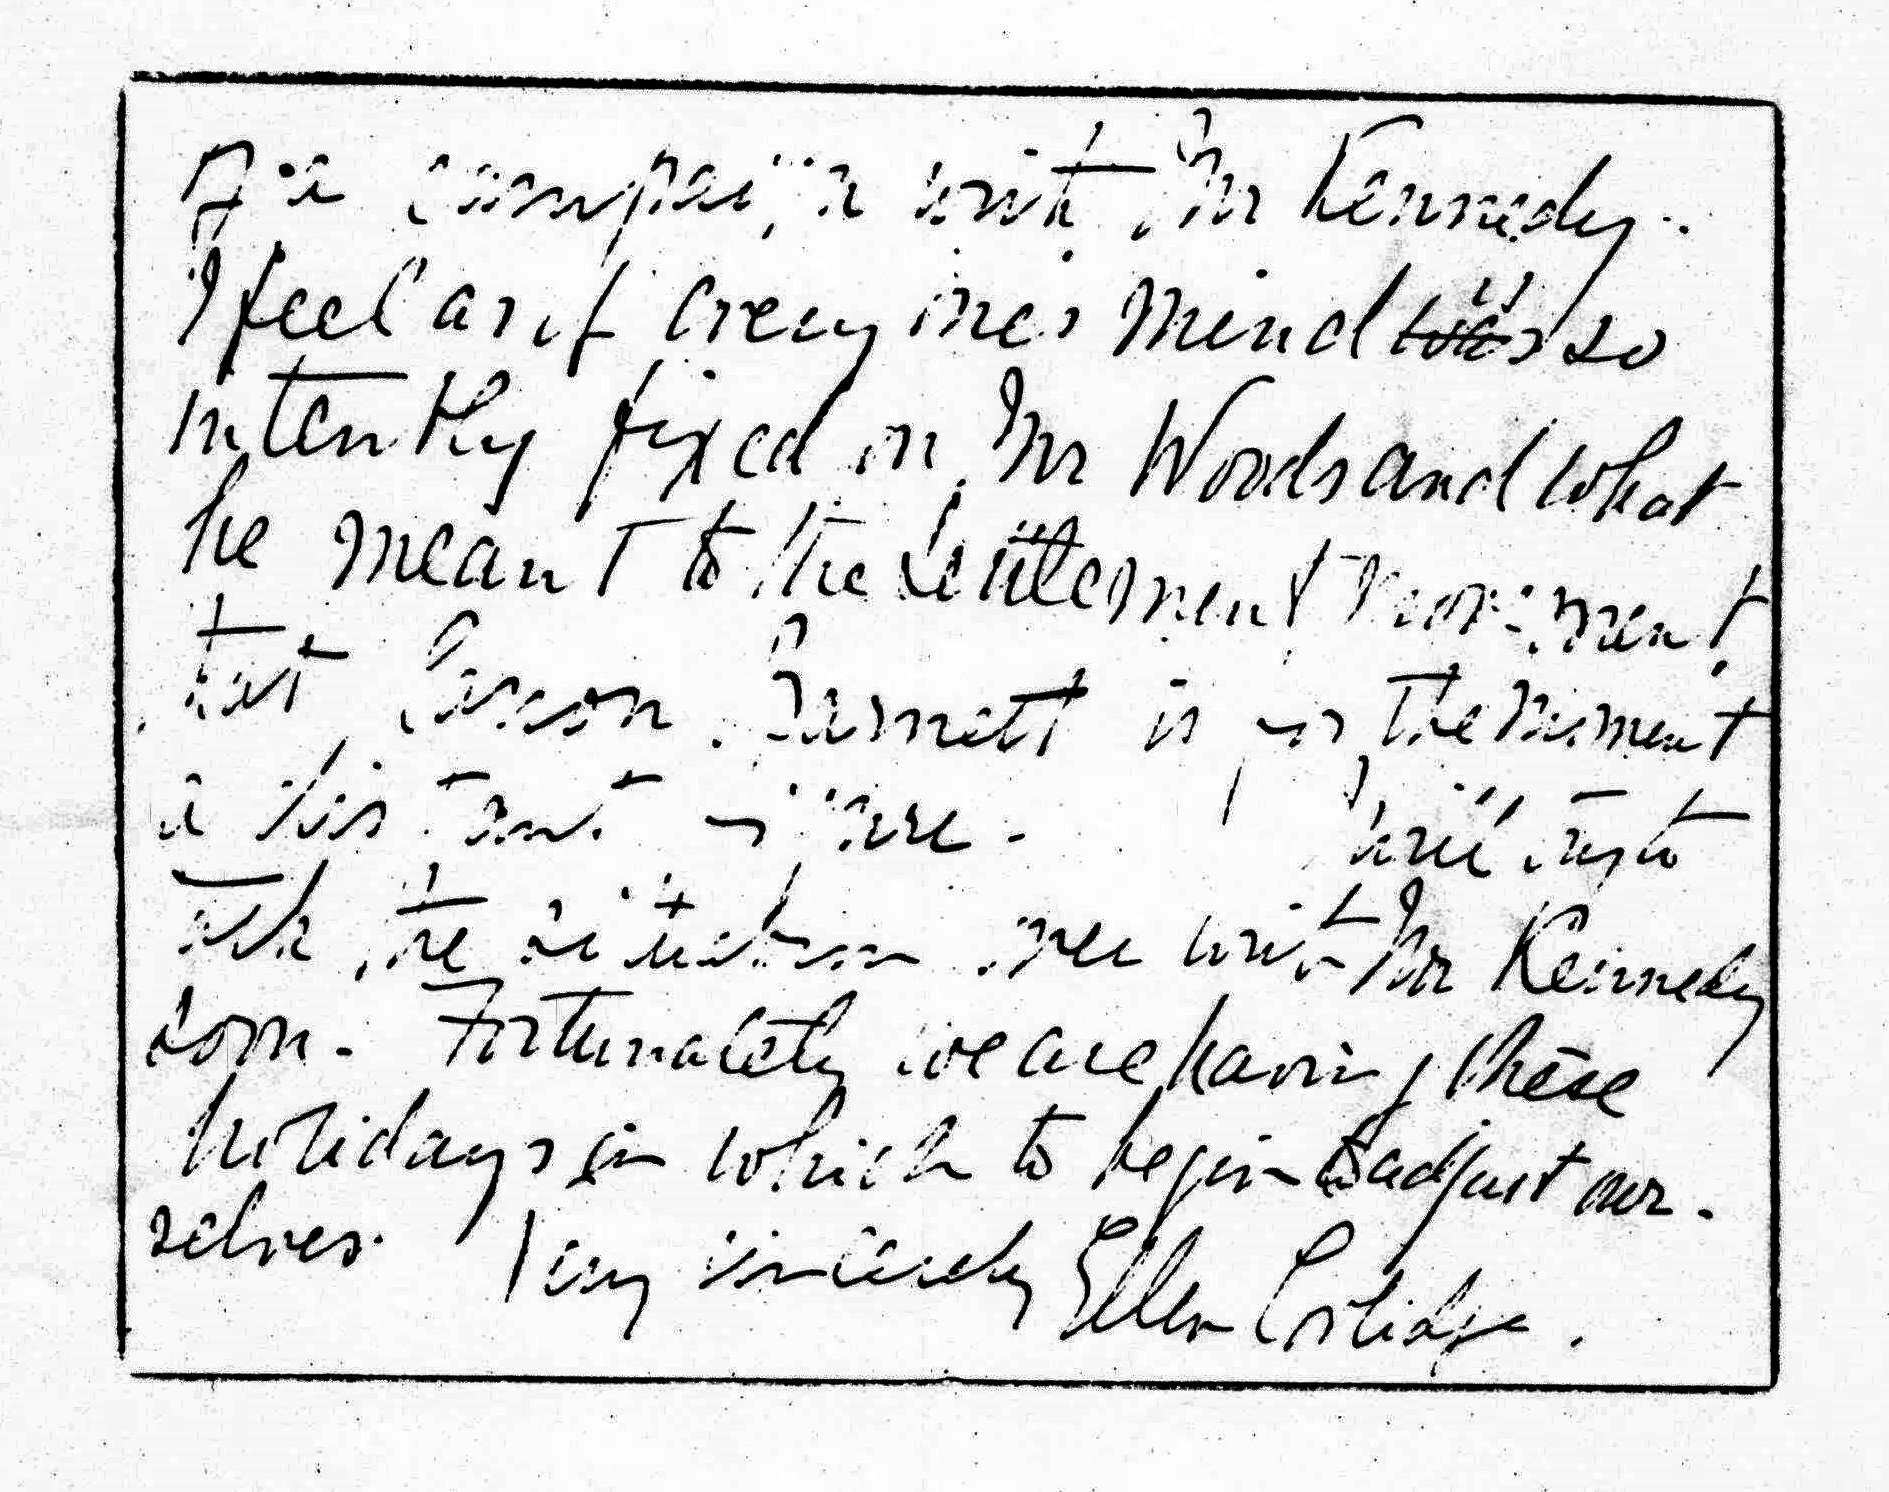 for a campaign with Mr Kennedy.
I feel as if every ones mind is so
intently fixed on Mr Woods and what
he meant to the Settlement Movement
that Canon Barnett is for the moment
a distant figure. I will try to
talk the situation over with Mr Kennedy
soon. Fortunately we are having these
holidays in which to begin to adjust our-
selves. Very sincerely Ellen Coolidge.